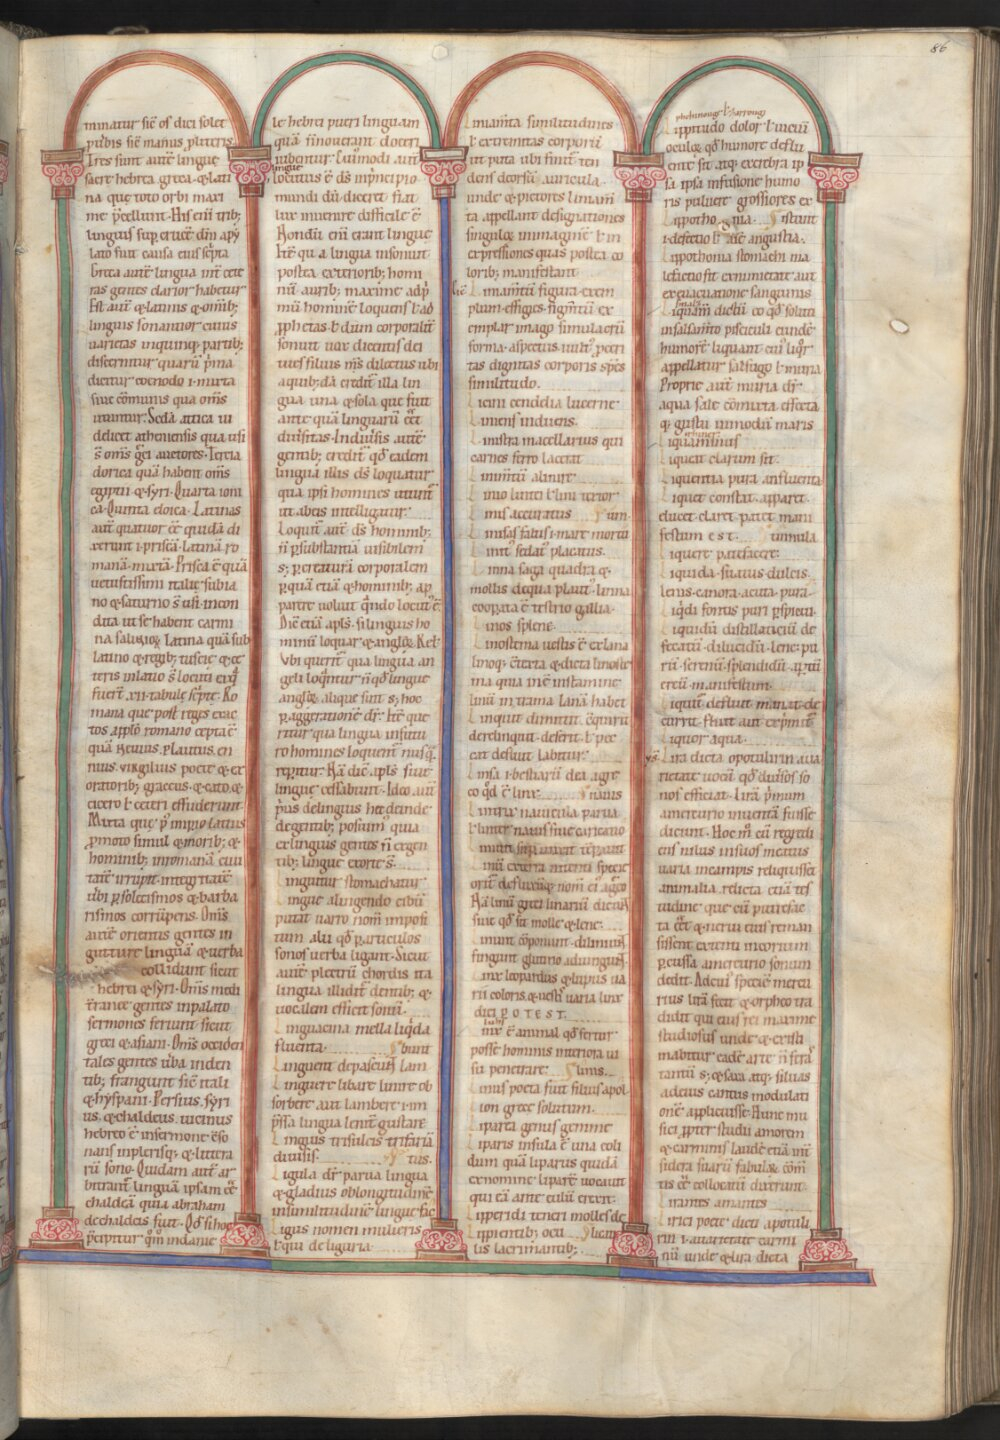 86
minatur sic̄ os dici solet
Tres sunt autē lingue
sacre hebrea greca ⁊ lati
na que toto orbi maxi
me p̄cellunt. His enī trib;
lato fuit causa eius sc̄pta
Greca autē lingua int̄ cete
ras gentes clarior habetur
Est autē ⁊ latinis ⁊ om̄ib;
linguis sonantior cuius
uarietas inquinq; partib;
discernitur quarū p̄ma
dicitur coenodo .i. mixta
siue cōmunis qua om̄s
utuntur. Scd̄a attica ui
delicet atheniensis qua usi
s̄ om̄s ḡci auctores. Tercia
dorica quā habent om̄s
egyptii ⁊ syri. Quarta ioni
ca. Quinta eloica. Latinas
autē quatuor ēē quidā di
xerunt .i. priscā. latinā. ro
manā. mixtā. Prisca ē quā
uetustissimi italie sub ia
no ⁊ saturno s̄ usi. incon
dita ut se habent carmi
na saliorū. Latina quā sub
latino ⁊ regib; tuscie ⁊ ce
teris in latio s̄ locuti
fuer̄t .xii. tabule sc̄pte. Ro
mana que post reges exac
tos a pp̄lo romano cepta ē
quā Neuius. Plautus. en
nius. virgilius poete ⁊ ex
oratorib; graccus. ⁊ cato. ⁊
cicero ł ceteri effuderunt.
Mixta que p̄ imp̄io latius
p̄moto simul ⁊ morib; ⁊
hominib; inromanā ciui
tatē irrupit. integritatē
ūbi p̄ solecismos ⁊ barba
rismos corrūpens. Om̄s
autē orientis gentes in
gutture linguā ⁊ uerba
collidunt sicut
hebrei ⁊ syri. Om̄s medi
t̄ranee gentes inpalato
sermones feriunt sicut
greci ⁊ asiani. Om̄s occiden
tales gentes ūba inden
tib; frangunt sic̄ itali
⁊ hyspani. Persius. syri
us. ⁊ chaldeus. uicinus
hebreo ē insermone ⁊ so
nans inplerisq; ⁊ littera
rū sono. Quidam autē ar
bitrant̄ linguā ipsam ēē
chaldeā quia abraham
dechaldeis fuit. Qd̄ si hoc
p̄cipitur q̄m indanie
le hebrei pueri linguam
quā n̄ nouerant doceri
iubentur. Cuīmodi autē
lingue
locutus ē ds̄ inp̄ncipio
mundi dū diceret fiat
lux inuenire difficile ē
Nondū enī erant lingue
Itē qua lingua insonuit
postea exteriorib; homi
nū aurib; maxime adp̄
mū hominē loquens ł ad
p̄phetas ł dum corporalit̄
sonuit uox dicentis dei
tu es filius m̄s dilectus ubi
aquib;dā credit̄ illa lin
gua una ⁊ sola que fuit
ante quā linguarū ēēt
diūsitas. Indiūsis autē
gentib; credit̄ qd̄ eadem
lingua illis ds̄ loquatur
qua ipsi homines utunt̄
ut abeis intelligatur.
Loquit̄ autē ds̄ hominib;
n̄ p̄ substantiā uisibilem
s; p̄ creaturā corporalem
p̄ quā etiā ⁊ hominib; ap
parere uoluit q̄ndo locut' ē.
Dic̄ etiā apl̄s. si linguis ho
minū loquar ⁊ anglōꝝ. Ret.
Vbi querit̄ qua lingua an
geli loqūntur n̄ qd̄ lingue
anglōꝝ alique sunt s; hoc
p̄ aggerationē dr̄. Itē que
ritur qua lingua infutu
ro homines loquent̄ nusq̄
rep̄itur. Nā dic̄ apl̄s siue
lingue cessabunt. Ideo autē
p̄us delinguis hec deinde
degentib; posuim' quia
ex linguis gentes n̄ exgen
tib; lingue exorte s̄.
Lingitur stomachatur.
Lingue alingendo cibū
putat uarro nom̄ imposi
tum. alii qd̄ p̄ articulos
sonos uerba ligant. Sicut
autē plectrū chordis ita
lingua illidit̄ dentib; ⁊
uocalem efficit sonū.
Linguacina mella liq̄da
fluenta. bunt
Linguent depascunt̄ lam
Linguere libare linire ob
sorbere aut lambere .i. im
p̄ssa lingua lenit̄ gustare
Lingus trisulcis trifariā
diuisis. tus.
Ligula dr̄ parua lingua
⁊ gladius oblongitudinē
insimilitudinē lingue fac
Ligus nomen mulieris
ł qui deliguria.
Liniam̄ta similitudines
ł extremitas corporū
ut puta ubi finit̄ ten
dens deorsū auricula.
unde ⁊ pictores liniam̄
ta appellant designationes
singuloꝝ immaginē ł in
expressiones quas postea co
lorib; manifestant
Liniam̄tū figura. exem
plum. effigies. figm̄tū ex
emplar imago simulacrū
forma. aspectus. uult'. p̄ceri
tas dignitas corporis sp̄es
similitudo.
Licini cendelia lucerne
Liniens induens.
Linistra macellarius qui
carnes ferro lacerat
Linim̄tū alinire.
Linio lintei ł lini textor
Linis accuratus um
Linisas falsus .i. mare mortu
Linit' sedat' placatus.
Linna saga quadra ⁊
mollis dequa plaut'. linna
cooperta ē textrio gallia.
Linos splene.
Linostema uestis ē ex lana
linoq; cōtexta ⁊ dicta linoste
ma quia inē instamine
linū in trama lanā habet
Linquit dimittit. ēquirit
derelinquit. deserit. ł pec
cat desiuit labitur.
Linsa .i. bestiarū dea agre
co qd̄ ē linx. nauis
Lintrix nauicula parua
dici POTEST
Linx ē animal qd̄ fertur
posse hominis interiora ui
su penetrare. linus.
Linus poeta fuit filius apol
lon grece solutum.
Liparea genus gemme
Liparis insula ē una eoli
dum quā liparus quidā
exnomine liparē uocauit
qui eā ante eulū exerit.
Lipperidi teneri molles de
Lippientib; ocu
lis lacrimantib;
Lippitudo dolor ł uiciū
oculoꝝ qd̄ humore deflu
ente sit atq; excrebra ip
sa ipsa infusione humo
ris puluere grossiores ex
.i. defectio ł aīē angustia.
Lippothomia stomachi ma
lefactio fit ex inanitate aut
exeuacuatione sanguinis
Liquam̄ dictū eo qd̄ soluti
insalsam̄to pisciculi eundē
humorē liquant cui' liq̄r
appellatur salsugo ł muria
Proprie aut̄ muria dr̄
aqua sale cōmixta effecta
q; gustu inmodū maris
Liquaminis
Liqueat clarum sit.
Liquentia pura. influentia
Liquet constat. apparet.
elucet. claret. patet. mani
festum est. unnula
Liquere patefacere.
Liquida. suauis. dulcis.
lenis. canora. acuta. pura.
Liq̄di fontis puri p̄spicui.
Liquidū distillaticiū de
fecatū dilucidū. lene. pu
rū. serenū. splendidū. ap̄tū
certū. manifestum.
Liquit̄ defluit manat de
currit. fluit aut exp̄mit̄
Liquor aqua.
Lira dicta opotulirin aua
rietate uocū qd̄ diūsos so
nos efficiat. Lirā p̄mum
amercurio inuentā fuisse
dicunt. Hoc m̄ cū regredi
ens nilus insuos meatus
uaria incampis reliquisset
animalia. relicta etiā tes
tudine que cū putrefac
ta ēēt ⁊ nerui eius reman
sissent extenti incorium
p̄cussa amercurio sonum
dedit. Adcui' speciē mercu
rius lirā fecit ⁊ orpheo tra
didit qui eius rei maxime
studiosus unde ⁊ existi
mabitur eadē arte n̄ feras
tantū s; ⁊ saxa atq; siluas
adeius cantus modulati
onē applicuisse. Hunc mu
sici p̄pter studii amorem
⁊ carminis laudē etiā int̄
sidera suarū fabulaꝝ cōm̄
tis ēē collocatū dixerunt.
Lirantes amantes
Lirici poete dicti apotuli
rin .i. auarietate carmi
nū unde ⁊ lira dicta